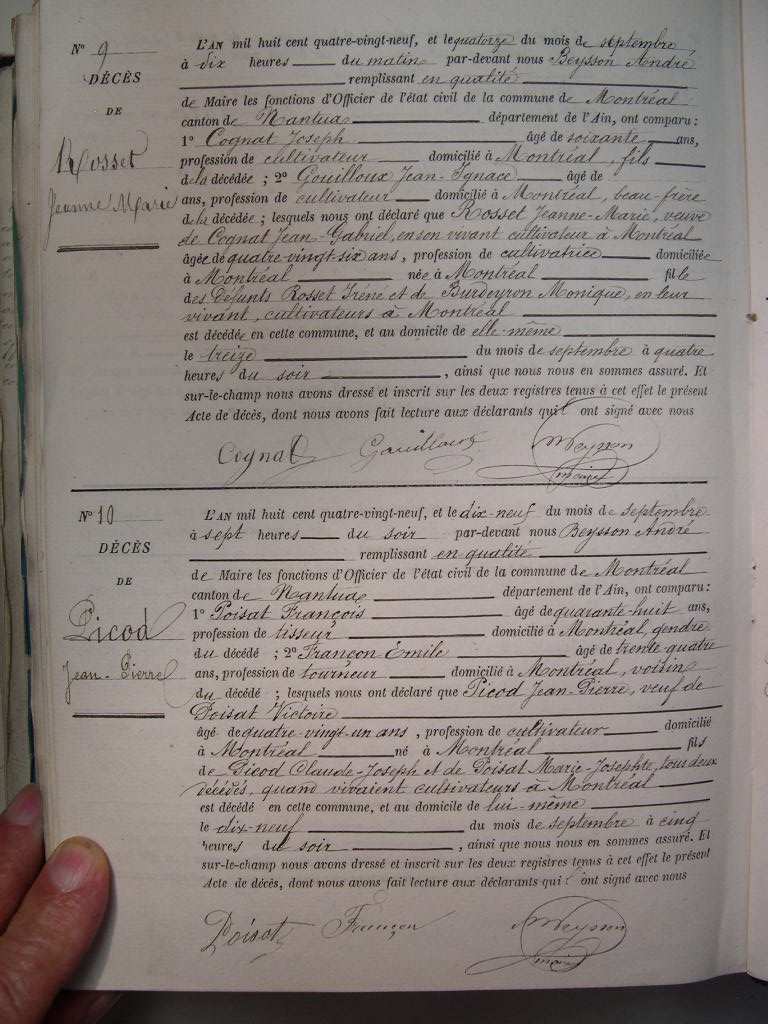 N° 9
DÉCÈS
DE
Rosset
Jeanne Marie
L'AN mil huit cent quatre-vingt-neuf, et le quatorze du mois de septembre
à dix heures du matin par-devant nous Beysson André
remplissant en qualité
de Maire les fonctions d'Officier de l'état civil de la commune de Montréal
canton de Nantua département de l'Ain, ont comparu :
1° Cognat Joseph âgé de soixante ans,
profession de cultivateur domicilié à Montréal, fils
de la décédée ; 2° Gouilloux Jean-Ignace âgé de
ans, profession de cultivateur domicilié à Montréal, beau-frère
de la décédée ; lesquels nous ont déclaré que Rosset Jeanne-Marie, veuve
de Cognat Jean-Gabriel, en son vivant cultivateur à Montréal
âgée de quatre-vingt-six ans, profession de cultivatrice domiciliée
à Montréal née à Montréal fille
des défunts Rosset Iréné et de Burdeyron Monique, en leur
vivant, cultivateurs à Montréal
est décédée en cette commune, et au domicile de elle-même
le treize du mois de septembre à quatre
heures du soir, ainsi que nous nous en sommes assuré. Et
sur-le-champ nous avons dressé et inscrit sur les deux registres tenus à cet effet le présent
Acte de décès, dont nous avons fait lecture aux déclarants qui ont signé avec nous
Cognat Gouilloux ABeysson
maire
N° 10
DÉCÈS
DE
Picod
Jean-Pierre
L'AN mil huit cent quatre-vingt-neuf, et le dix-neuf du mois de septembre
à sept heures du soir par-devant nous Beysson André
remplissant en qualité
de Maire les fonctions d'Officier de l'état civil de la commune de Montréal
canton de Nantua département de l'Ain, ont comparu :
1° Poisat François âgé de quarante-huit ans,
profession de tisseur domicilié à Montréal, gendre
du décédé ; 2° Françon Émile âgé de trente quatre
ans, profession de tourneur domicilié à Montréal, voisin
du décédé ; lesquels nous ont déclaré que Picod Jean-Pierre, veuf de
Poisat Victoire
âgé de quatre-vingt-un ans, profession de cultivateur domicilié
à Montréal né à Montréal fils
de Picod Claude-Joseph et de Poisat Marie-Josephte, tous deux
décédés, quand vivaient cultivateurs à Montréal
est décédé en cette commune, et au domicile de lui-même
le dix-neuf du mois de septembre à cinq
heures du soir, ainsi que nous nous en sommes assuré. Et
sur-le-champ nous avons dressé et inscrit sur les deux registres tenus à cet effet le présent
Acte de décès, dont nous avons fait lecture aux déclarants qui ont signé avec nous
Poisat Françon ABeysson
maire